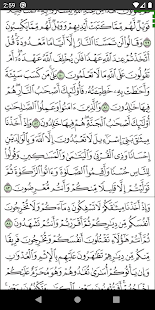 2:59
فَوَيْلٌ لَّهُم مِّمَّا كَتَبَتْ أَيْدِيهِمْ وَوَيْلٌ لَّهُم مِّمَّا يَكْسِبُونَ
٧٩ وَقَالُوا۟ لَن تَمَسَّنَا ٱلنَّارُ إِلَّآ أَيَّامًا مَّعْدُودَةً قُلْ
أَتَّخَذْتُمْ عِندَ ٱللَّهِ عَهْدًا فَلَن يُخْلِفَ ٱللَّهُ عَهْدَهُۥٓ أَمْ
تَقُولُونَ عَلَى ٱللَّهِ مَا لَا تَعْلَمُونَ ٨٠ بَلَىٰ مَن كَسَبَ سَيِّئَةً
وَأَحَٰطَتْ بِهِۦ خَطِيٓـَٔتُهُۥ فَأُو۟لَٰٓئِكَ أَصْحَٰبُ ٱلنَّارِ هُمْ فِيهَا
خَٰلِدُونَ ٨١ وَٱلَّذِينَ ءَامَنُوا۟ وَعَمِلُوا۟ ٱلصَّٰلِحَٰتِ
أُو۟لَٰٓئِكَ أَصْحَٰبُ ٱلْجَنَّةِ هُمْ فِيهَا خَٰلِدُونَ ٨٢ وَإِذْ
أَخَذْنَا مِيثَٰقَ بَنِىٓ إِسْرَٰٓءِيلَ لَا تَعْبُدُونَ إِلَّا ٱللَّهَ وَبِٱلْوَٰلِدَيْنِ
إِحْسَانًا وَذِى ٱلْقُرْبَىٰ وَٱلْيَتَٰمَىٰ وَٱلْمَسَٰكِينِ وَقُولُوا۟
لِلنَّاسِ حُسْنًا وَأَقِيمُوا۟ ٱلصَّلَوٰةَ وَءَاتُوا۟ ٱلزَّكَوٰةَ
ثُمَّ تَوَلَّيْتُمْ إِلَّا قَلِيلًا مِّنكُمْ وَأَنتُم مُّعْرِضُونَ ٨٣
وَإِذْ أَخَذْنَا مِيثَٰقَكُمْ لَا تَسْفِكُونَ دِمَآءَكُمْ وَلَا تُخْرِجُونَ
أَنفُسَكُم مِّن دِيَٰرِكُمْ ثُمَّ أَقْرَرْتُمْ وَأَنتُمْ تَشْهَدُونَ
٨٤ ثُمَّ أَنتُمْ هَٰٓؤُلَآءِ تَقْتُلُونَ أَنفُسَكُمْ وَتُخْرِجُونَ فَرِيقًا
مِّنكُم مِّن دِيَٰرِهِمْ تَظَٰهَرُونَ عَلَيْهِم بِٱلْإِثْمِ وَٱلْعُدْوَٰنِ
وَإِن يَأْتُوكُمْ أُسَٰرَىٰ تُفَٰدُوهُمْ وَهُوَ